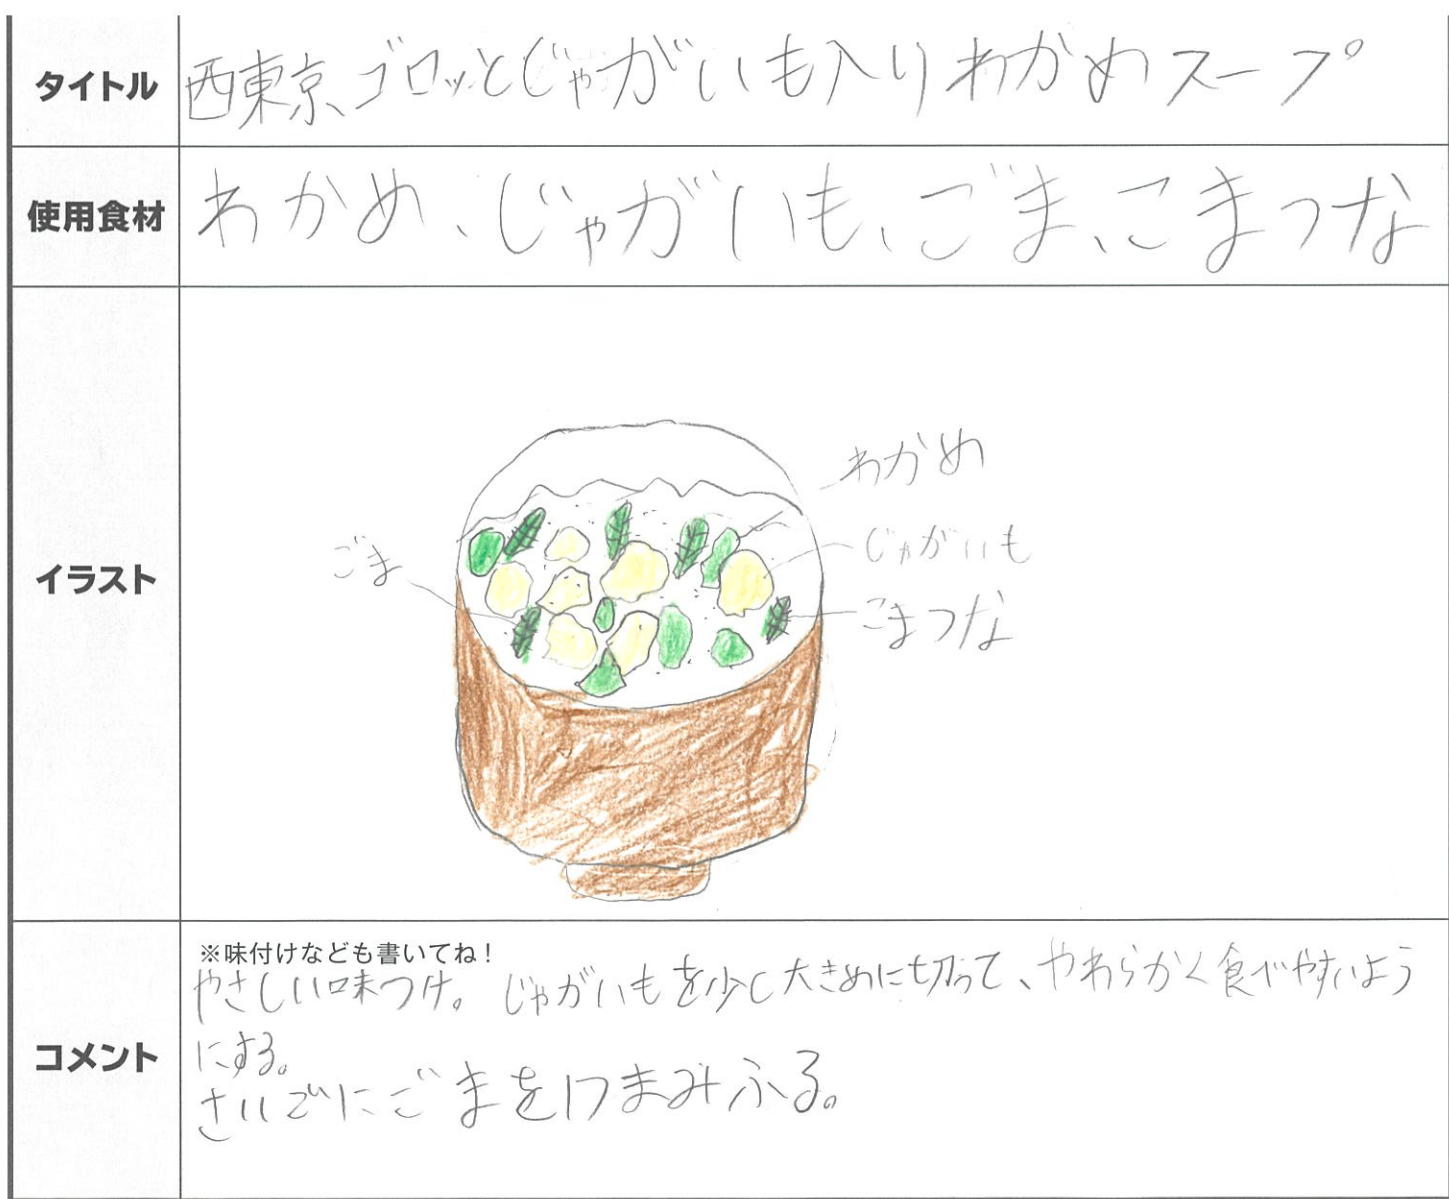 タイトル
西東京、ゴロッとじゃがいも入りわかめスープ
使用食材
わかめ、じゃがいも、ごま、こまつな
イラスト
わかめ
じゃがいも
ごま
こまつな
コメント
※味付けなども書いてね！
やさしい味つけ。じゃがいもを少し大きめに切って、やわらかく食べやすいよう
にする。
さいごにごまを1つまみふる。